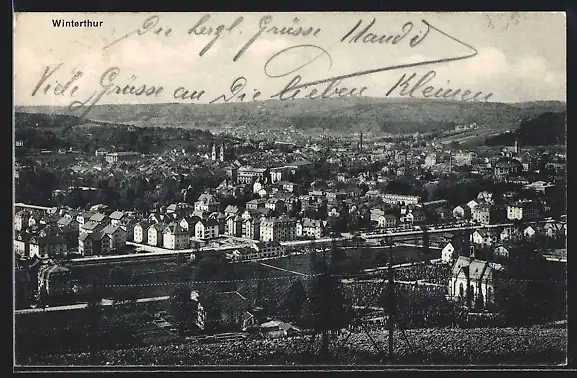 Winterthur
Die herzl. Grüsse
Viele Grüsse an die lieben Kleinen